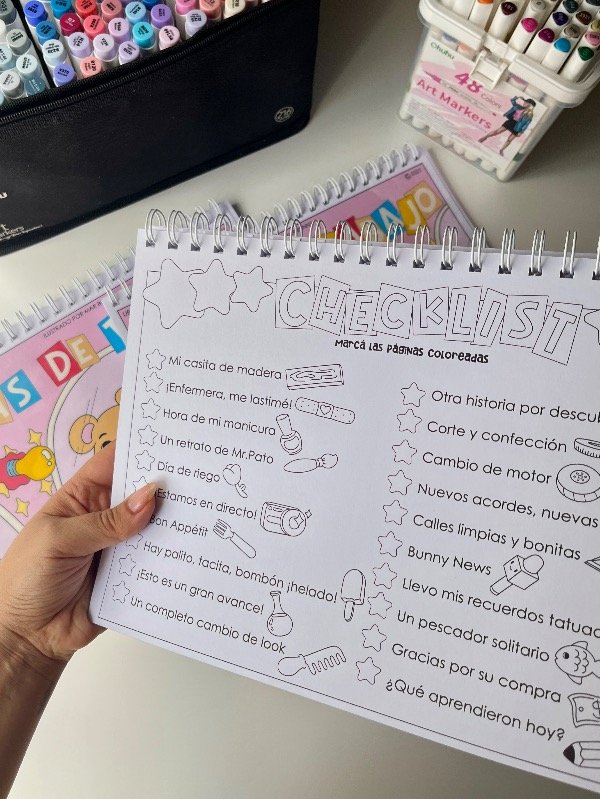 Ohuhu
48 Colors
Art Markers
216
AJO
ILUSTRADO POR MAR
S DE T
CHECKLIST
MARCA LAS PÁGINAS COLOREADAS
Mi casita de madera
¡Enfermera, me lastimé!
Hora de mi manicura
Un retrato de Mr.Pato
Día de riego
¡Estamos en directo!
Bon Appétit
Hay palito, tacita, bombón ¡helado!
¡Esto es un gran avance!
Un completo cambio de look
Otra historia por descub
Corte y confección
Cambio de motor
Nuevos acordes, nuevas
Calles limpias y bonitas
Bunny News
Llevo mis recuerdos tatuad
Un pescador solitario
Gracias por su compra
¿Qué aprendieron hoy?